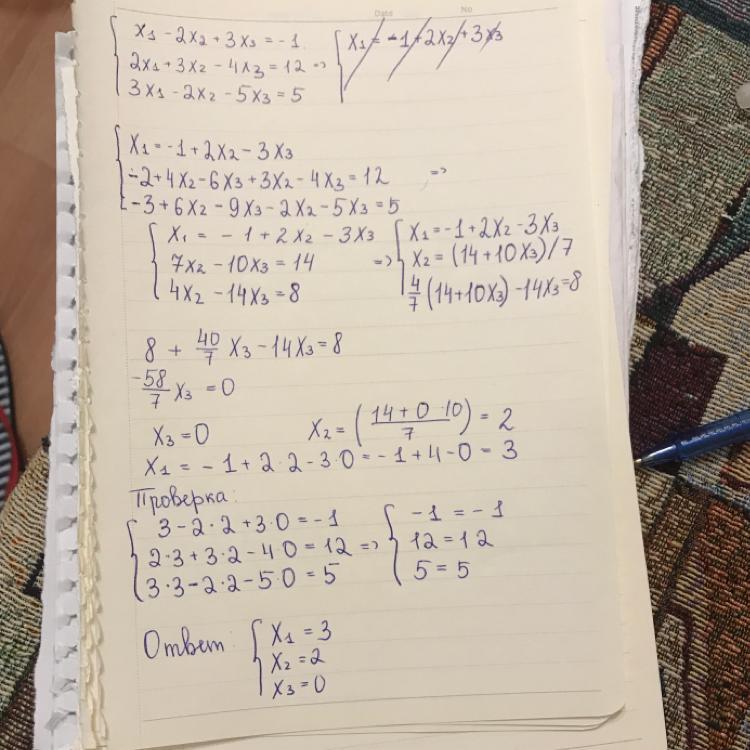 Date No
x₁ - 2x₂ + 3x₃ = -1 x₁ = -1 + 2x₂ + 3x₃
2x₁ + 3x₂ - 4x₃ = 12 =>
3x₁ - 2x₂ - 5x₃ = 5
x₁ = -1 + 2x₂ - 3x₃
-2 + 4x₂ - 6x₃ + 3x₂ - 4x₃ = 12 =>
-3 + 6x₂ - 9x₃ - 2x₂ - 5x₃ = 5
x₁ = -1 + 2x₂ - 3x₃
7x₂ - 10x₃ = 14 =>
4x₂ - 14x₃ = 8
x₁ = -1 + 2x₂ - 3x₃
x₂ = (14 + 10x₃)/7
4/7 (14 + 10x₃) - 14x₃ = 8
8 + 40/7 x₃ - 14x₃ = 8
-58/7 x₃ = 0
x₃ = 0 x₂ = ((14 + 0·10)/7) = 2
x₁ = -1 + 2·2 - 3·0 = -1 + 4 - 0 = 3
Проверка:
3 - 2·2 + 3·0 = -1
2·3 + 3·2 - 4·0 = 12 =>
3·3 - 2·2 - 5·0 = 5
-1 = -1
12 = 12
5 = 5
Ответ: x₁ = 3
x₂ = 2
x₃ = 0